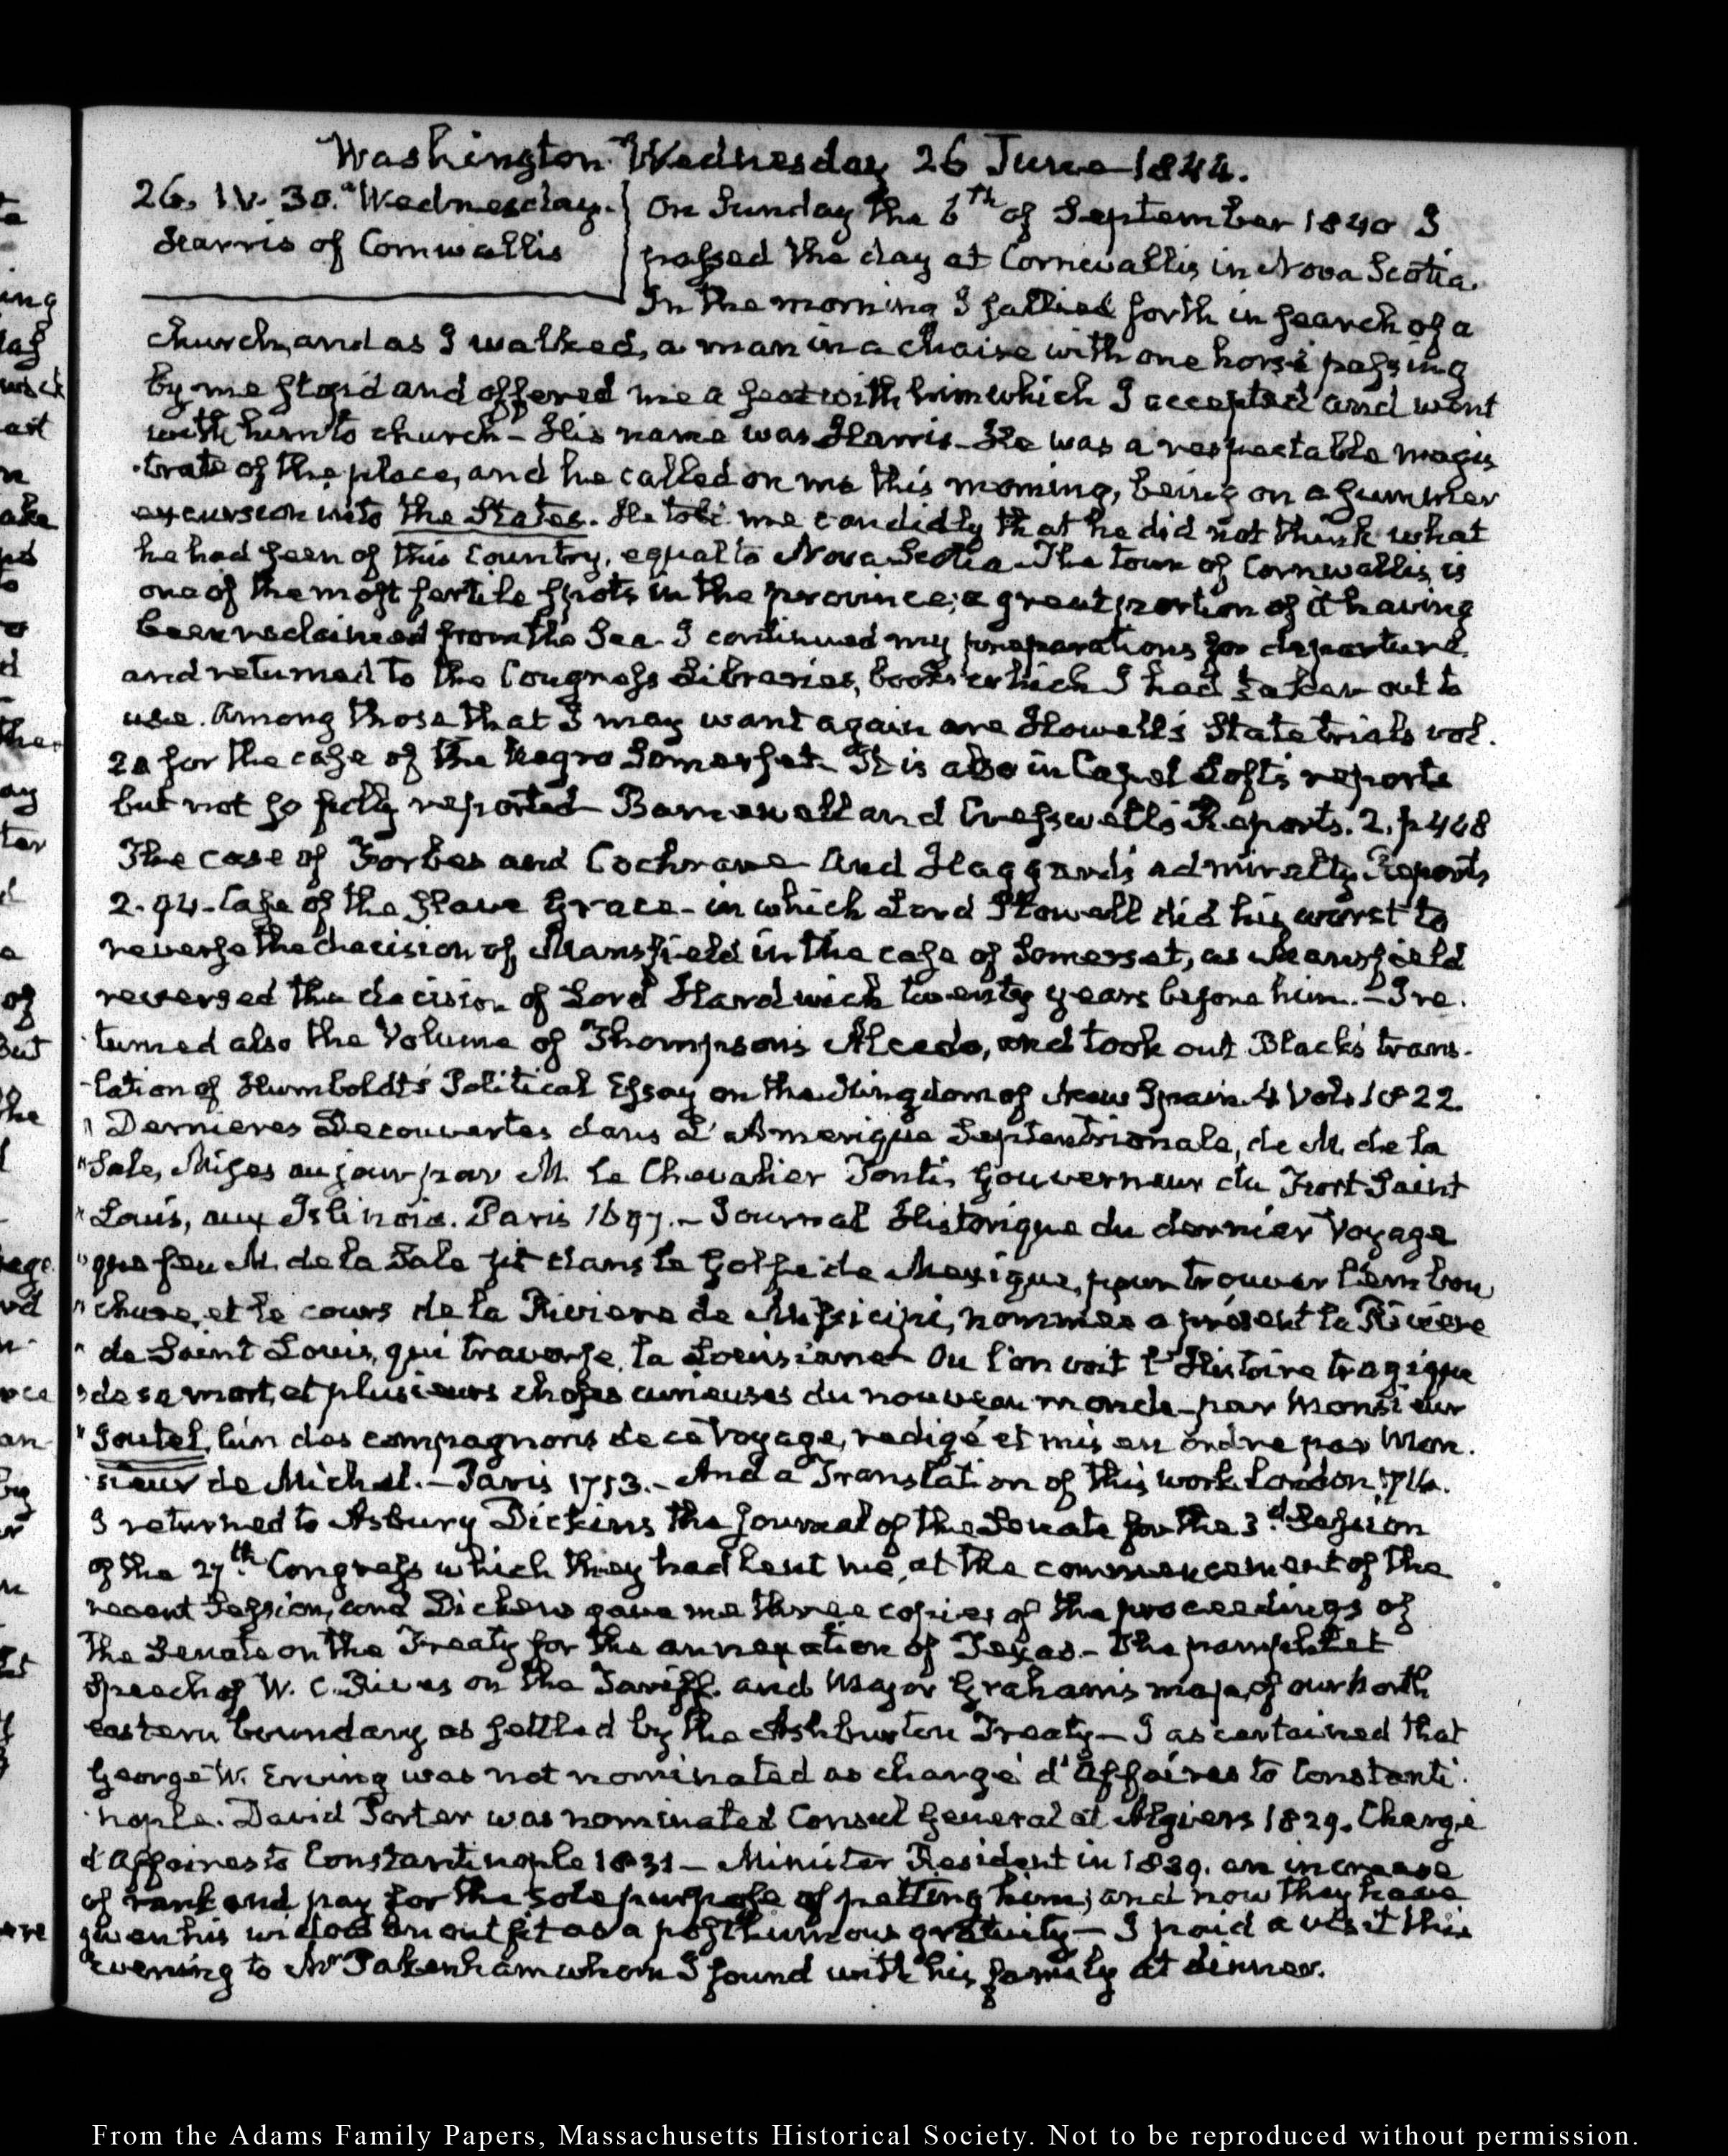 Washington Wednesday 26 June 1844.
26. IV. 30. Wednesday.
Harris of Cornwallis
On Sunday the 6th of September 1840 I
passed the day at Cornwallis in Nova Scotia.
In the morning I sallied forth in search of a
church, and as I walked, a man in a chaise with one horse passing
by me stop'd and offered me a seat with him which I accepted and went
with him to church – His name was Harris – He was a respectable magis
-trate of the place, and he called on me this morning, being on a summer
excursion into the States. He told me candidly that he did not think what
he had seen of this Country, equal to Nova Scotia – The town of Cornwallis is
one of the most fertile spots in the province; a great portion of it having
been reclaimed from the Sea – I continued my preparations for departure,
and returned to the Congress Libraries, books which I had taken out to
use. Among those that I may want again are Howell's State trials vol.
20 for the case of the Negro Somerset – It is also in Capel Lofts reports
but not so fully reported – Barnewell and Cresswell's Reports. 2. p 448
The case of Forbes and Cochrane – And Haggard's admiralty Reports
2. 94 – Case of the slave Grace – in which Lord Stowell did his worst to
reverse the decision of Mansfield in the case of Somerset, as Mansfield
reversed the decision of Lord Hardwick twenty years before him. – I re.
turned also the Volume of Thompson's Alcedo, and took out Black's trans-
-lation of Humboldt's Political Essay on the Kingdom of New Spain 4 Vols 1822.
" Dernieres Decouvertes dans L'Amerique Septentrionale, de M. de la
" Sale, Mises au jour par M. le Chevalier Tonti, Gouverneur du Fort Saint
" Louis, aux Islinois. Paris 1697. – Journal Historique du dernier Voyage
" que feu M. de la Sale fit dans le Golfe de Mexique, pour trouver l'embou
" chure, et le cours de la Riviere de Missicipi, nommée a présent la Rivière
" de Saint Louis, qui traverse, la Louisiane – Ou l'on voit l'Histoire tragique
" de sa mort, et plusieurs choses curieuses du nouveau monde – par Monsieur
" Joutel, l'un des compagnons de ce Voyage, redigé et mis en ordre par Mon.
-sieur de Michel. – Paris 1713. – And a Translation of this work London 1714.
I returned to Asbury Dickins the Journal of the Senate for the 3d Session
of the 27th Congress which they had lent me, at the commencement of the
recent Session, and Dickins gave me three copies of the proceedings of
the Senate on the Treaty for the annexation of Texas – The pamphlet
Speech of W. C. Rives on the Tariff. and Major Graham's maps, of our North
eastern boundary as settled by the Ashburton Treaty – I ascertained that
George W. Erving was not nominated as chargé d'Affaires to Constanti.
-nople. David Porter was nominated Consul General at Algiers 1829. Chargé
d'Affaires to Constantinople 1831 – Minister Resident in 1839. an increase
of rank and pay for the sole purpose of petting him; and now they have
given his widow an outfit as a posthumous gratuity – I paid a visit this
evening to Mr Pakenham whom I found with his family at dinner.
From the Adams Family Papers, Massachusetts Historical Society. Not to be reproduced without permission.